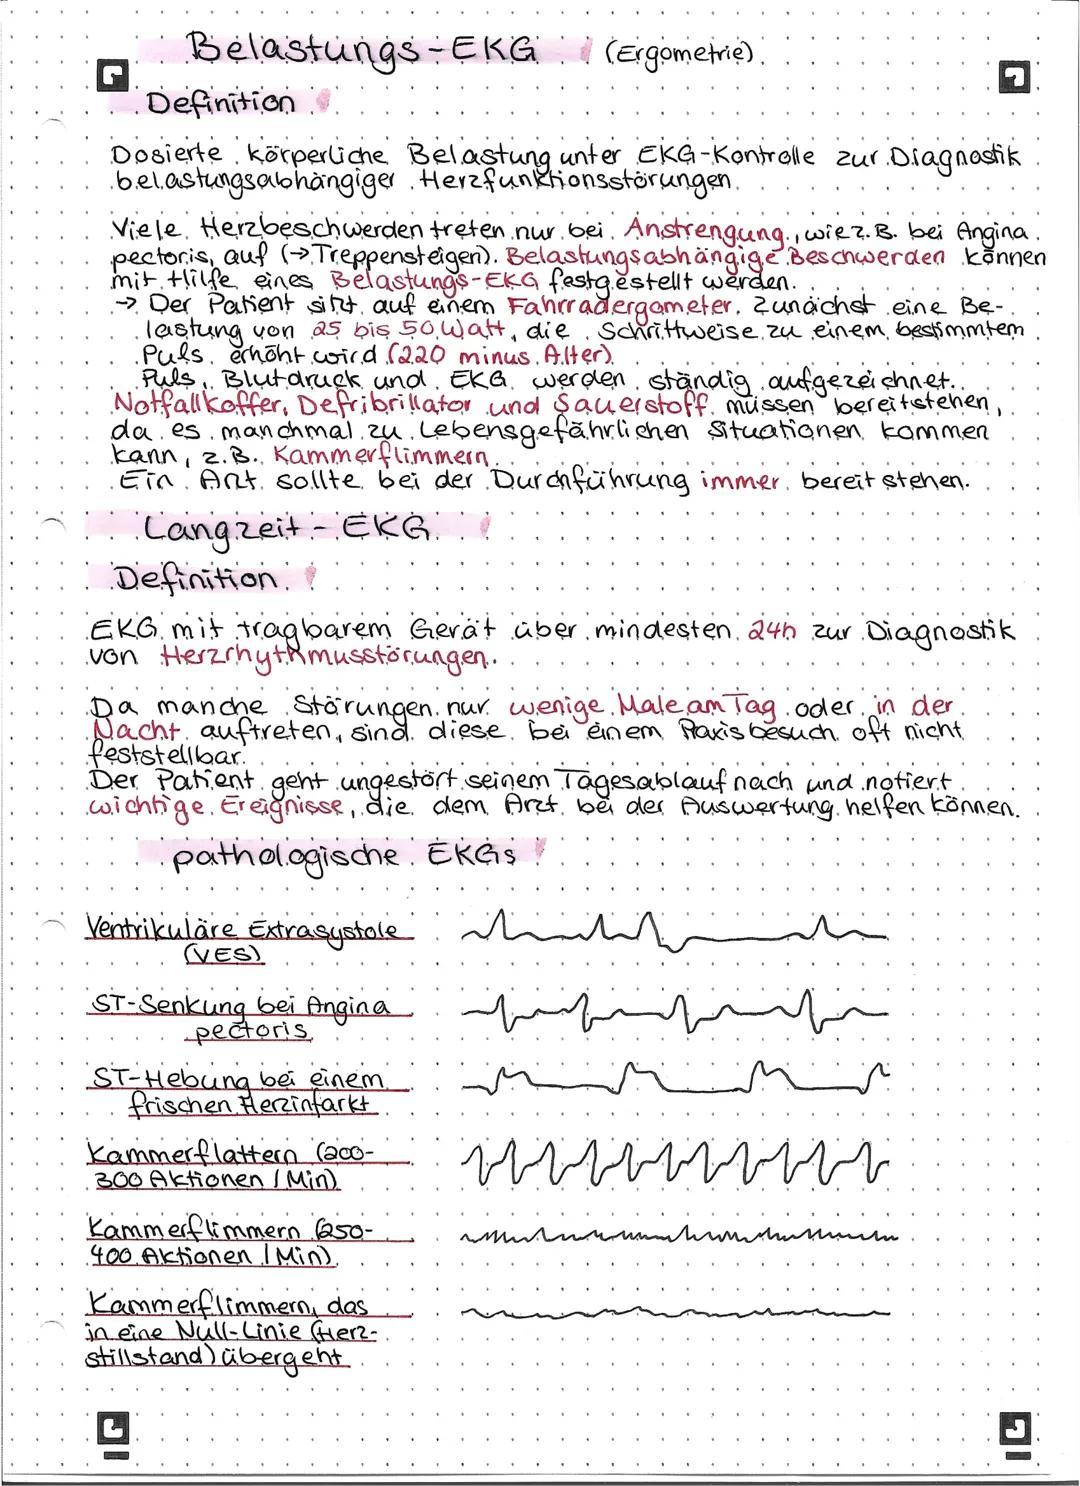 Belastungs-EKG (Ergometrie)
Definition
Dosierte körperliche Belastung unter EKG-Kontrolle zur Diagnostik
belastungsabhängiger Herzfunktionsstörungen.
Viele Herzbeschwerden treten nur bei Anstrengung, wie z.B. bei Angina
pectoris, auf (→ Treppensteigen). Belastungsabhängige Beschwerden können
mit Hilfe eines Belastungs-EKG festgestellt werden.
→ Der Patient sitzt auf einem Fahrradergometer. Zunächst eine Be-
lastung von 25 bis 50 Watt, die Schrittweise zu einem bestimmtem
Puls erhöht wird (220 minus Alter).
Puls, Blutdruck und EKG werden ständig aufgezeichnet.
Notfallkoffer, Defribrillator und Sauerstoff müssen bereitstehen,
da es manchmal zu Lebensgefährlichen Situationen kommen
kann, z.B. Kammerflimmern.
Ein Arzt sollte bei der Durchführung immer bereit stehen.
Langzeit-EKG
Definition
EKG mit tragbarem Gerät über mindesten 24h zur Diagnostik
von Herzrhythmusstörungen.
Da manche Störungen nur wenige Male am Tag oder in der
Nacht auftreten, sind diese bei einem Praxisbesuch oft nicht
feststellbar.
Der Patient geht ungestört seinem Tagesablauf nach und notiert
wichtige Ereignisse, die dem Arzt bei der Auswertung helfen können.
pathologische EKGs
Ventrikuläre Extrasystole
(VES)
ST-Senkung bei Angina
pectoris
ST-Hebung bei einem
frischen Herzinfarkt
Kammerflattern (200-
300 Aktionen / Min)
Kammerflimmern (250-
400 Aktionen / Min)
Kammerflimmern, das
in eine Null-Linie (Herz-
stillstand) übergeht